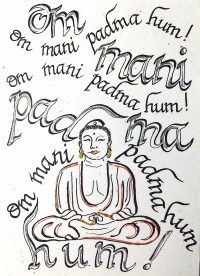 Om
om mani padma hum!
om mani padma hum!
mani
padma
om mani padma hum
hum!